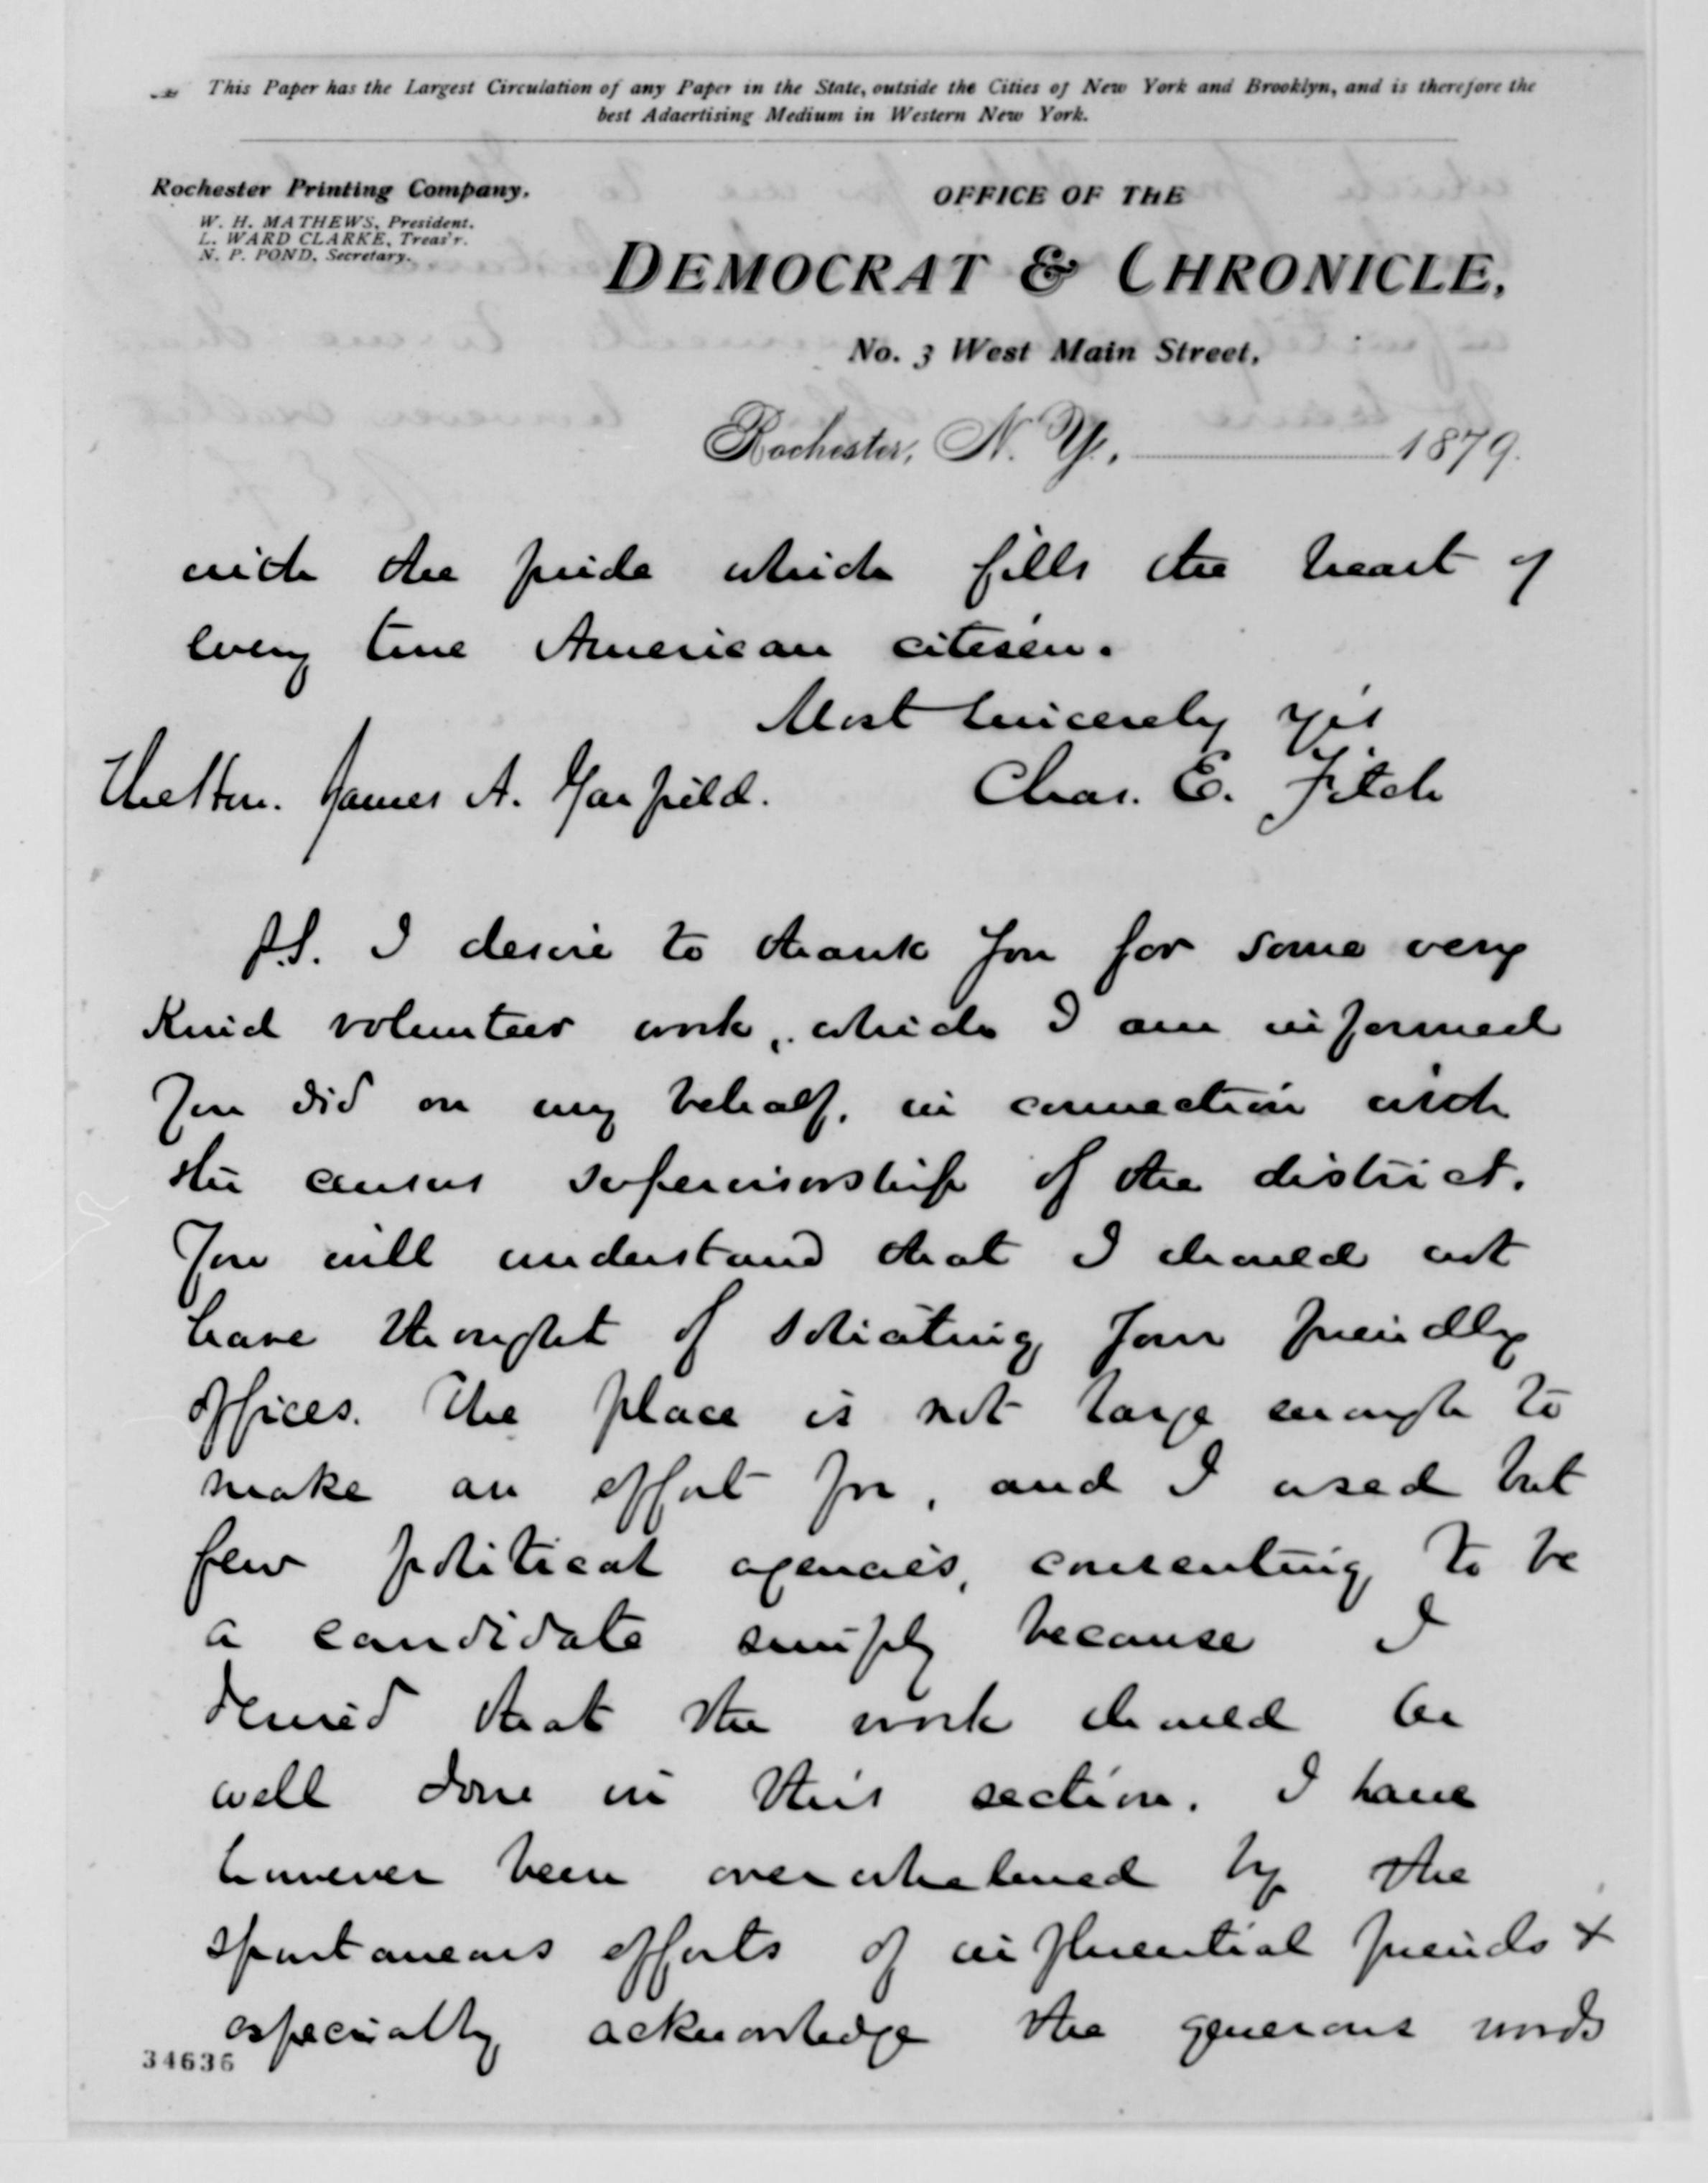 This Paper has the Largest Circulation of any Paper in the State, outside the Cities of New York and Brooklyn, and is therefore the
best Adaertising Medium in Western New York.
Rochester Printing Company.
W. H. MATHEWS, President.
L. WARD CLARKE, Treas'r.
N. P. POND, Secretary.
OFFICE OF THE
DEMOCRAT & CHRONICLE,
No. 3 West Main Street.
Rochester, N. Y., 1879.
with the pride which fills the heart of
every true American citizen.
Most sincerely yrs
Chas. E. Fitch
The Hon. James A. Garfield.
P.S. I desire to thank you for some very
kind volunteer work, which I am informed
you did on my behalf, in connection with
the census supervisorship of the district.
You will understand that I should not
have thought of soliciting your friendly
offices. The place is not large enough to
make an effort for, and I used but
few political agencies, consenting to be
a candidate simply because I
desired that the work should be
well done in this section. I have
however been overwhelmed by the
spontaneous efforts of influential friends &
especially acknowledge the generous words
34636